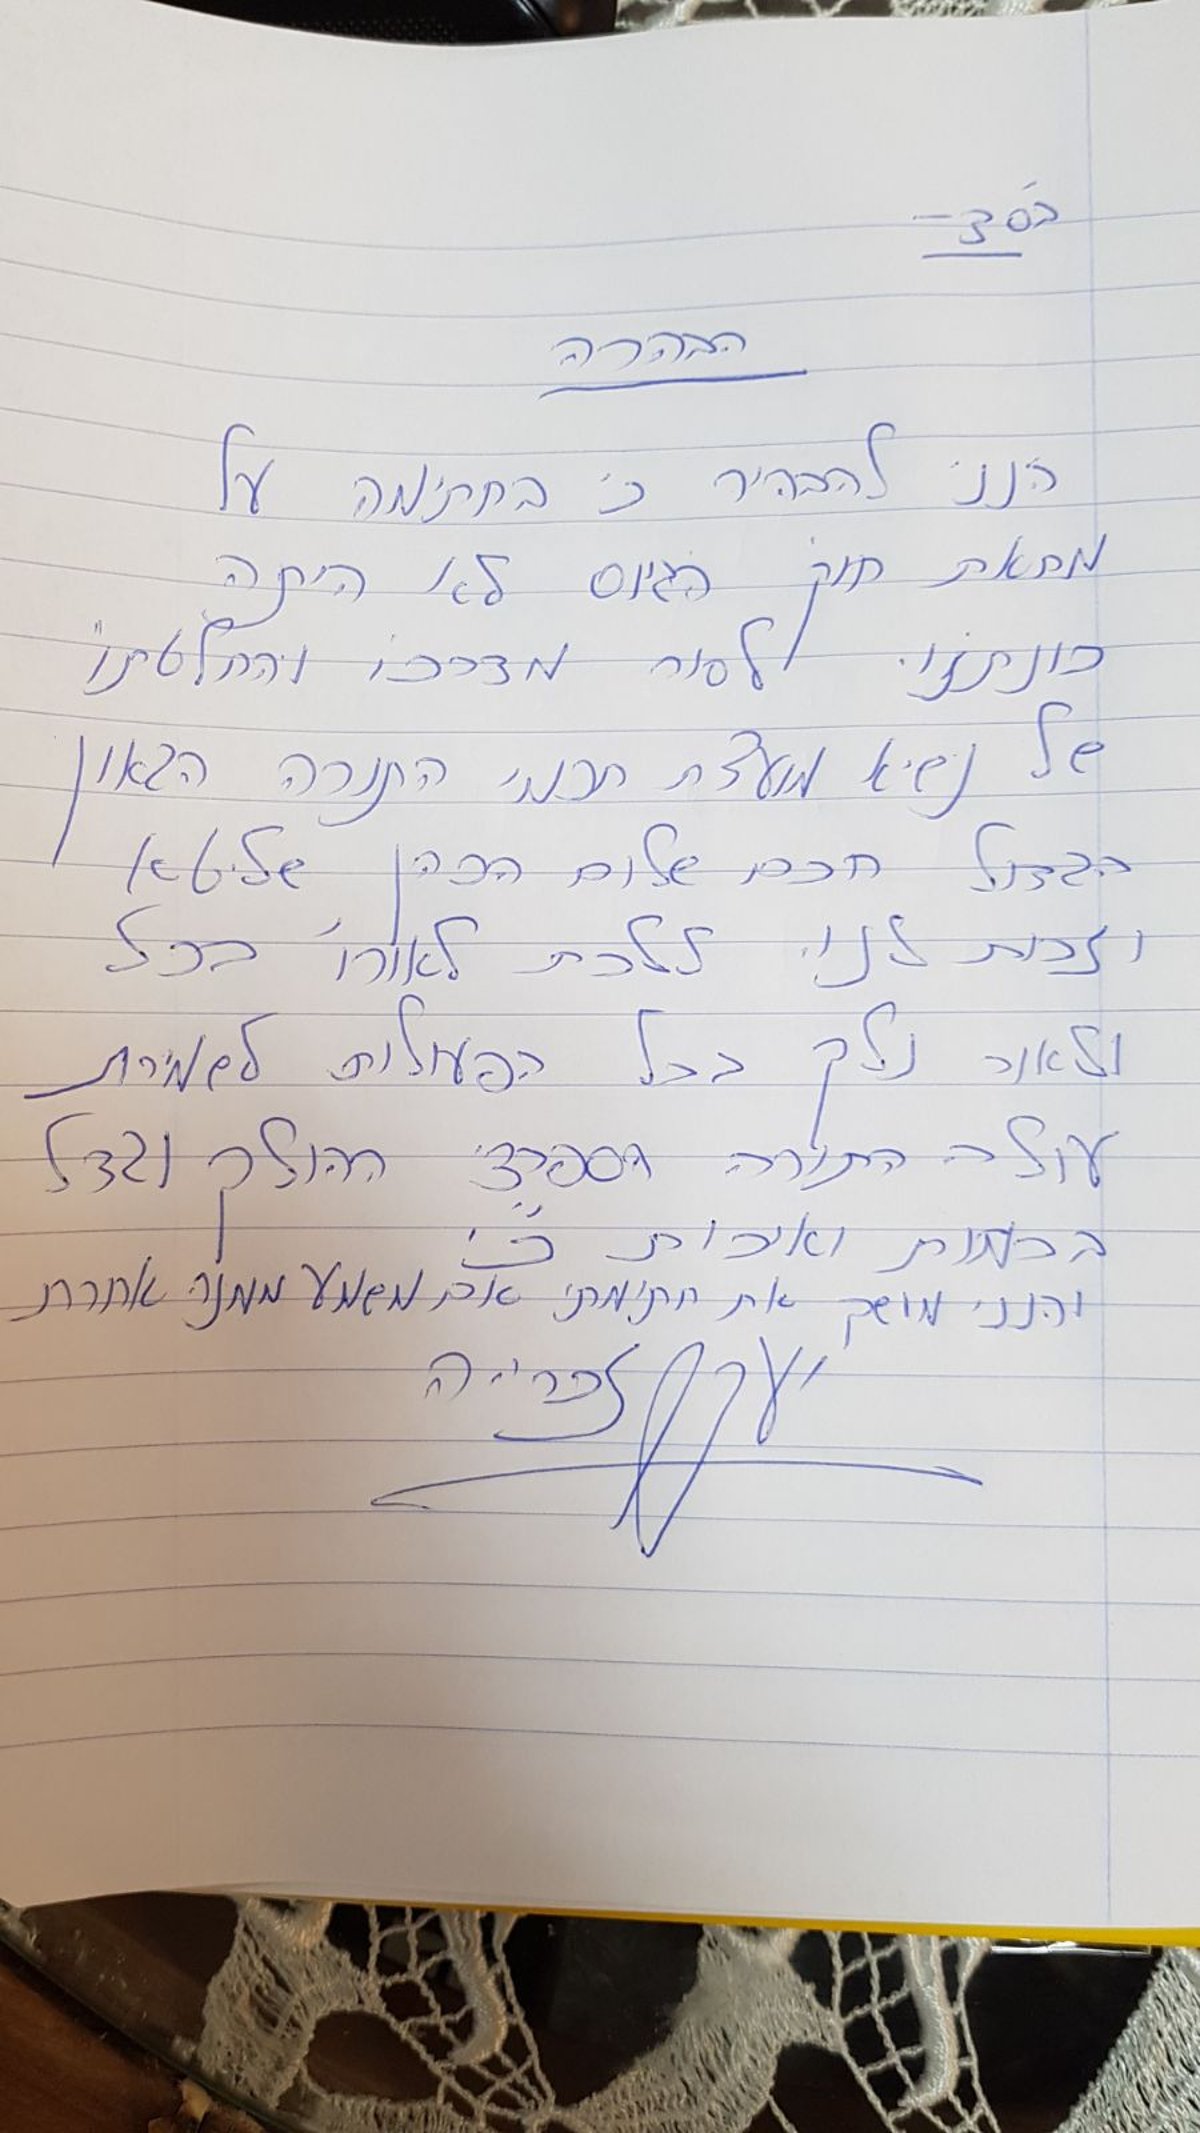 בס"ד
הבהרה
הנני להבהיר כי בחתימה על
מחאת חוק הגיוס לא היתה
כונתינו לסור מדרכו והחלטתו
של נשיא מועצת חכמי התורה הגאון
הגדול חכם שלום הכהן שליטא
וזכות לנו ללכת לאורו בכל
ולאור נלך בכל הפעולות לשמירת
עולה התורה הספרדי ההולך וגדל
בכמות ואיכות כ"י
והנני מושך את חתימתי אם משמע ממנה אחרת
יעקב זכריה